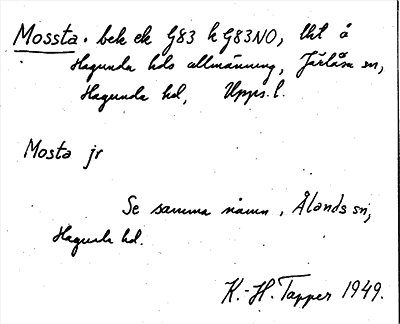 Mossta. bek ek G83 h G83NO, Ukt å
Hagunda hds allmänning, Järlåsa sn,
Hagunda hd, Upps. l.
Mosta jr
Se samma namn, Ålands sn,
Hagunda hd.
K.-H. Tapper 1949.